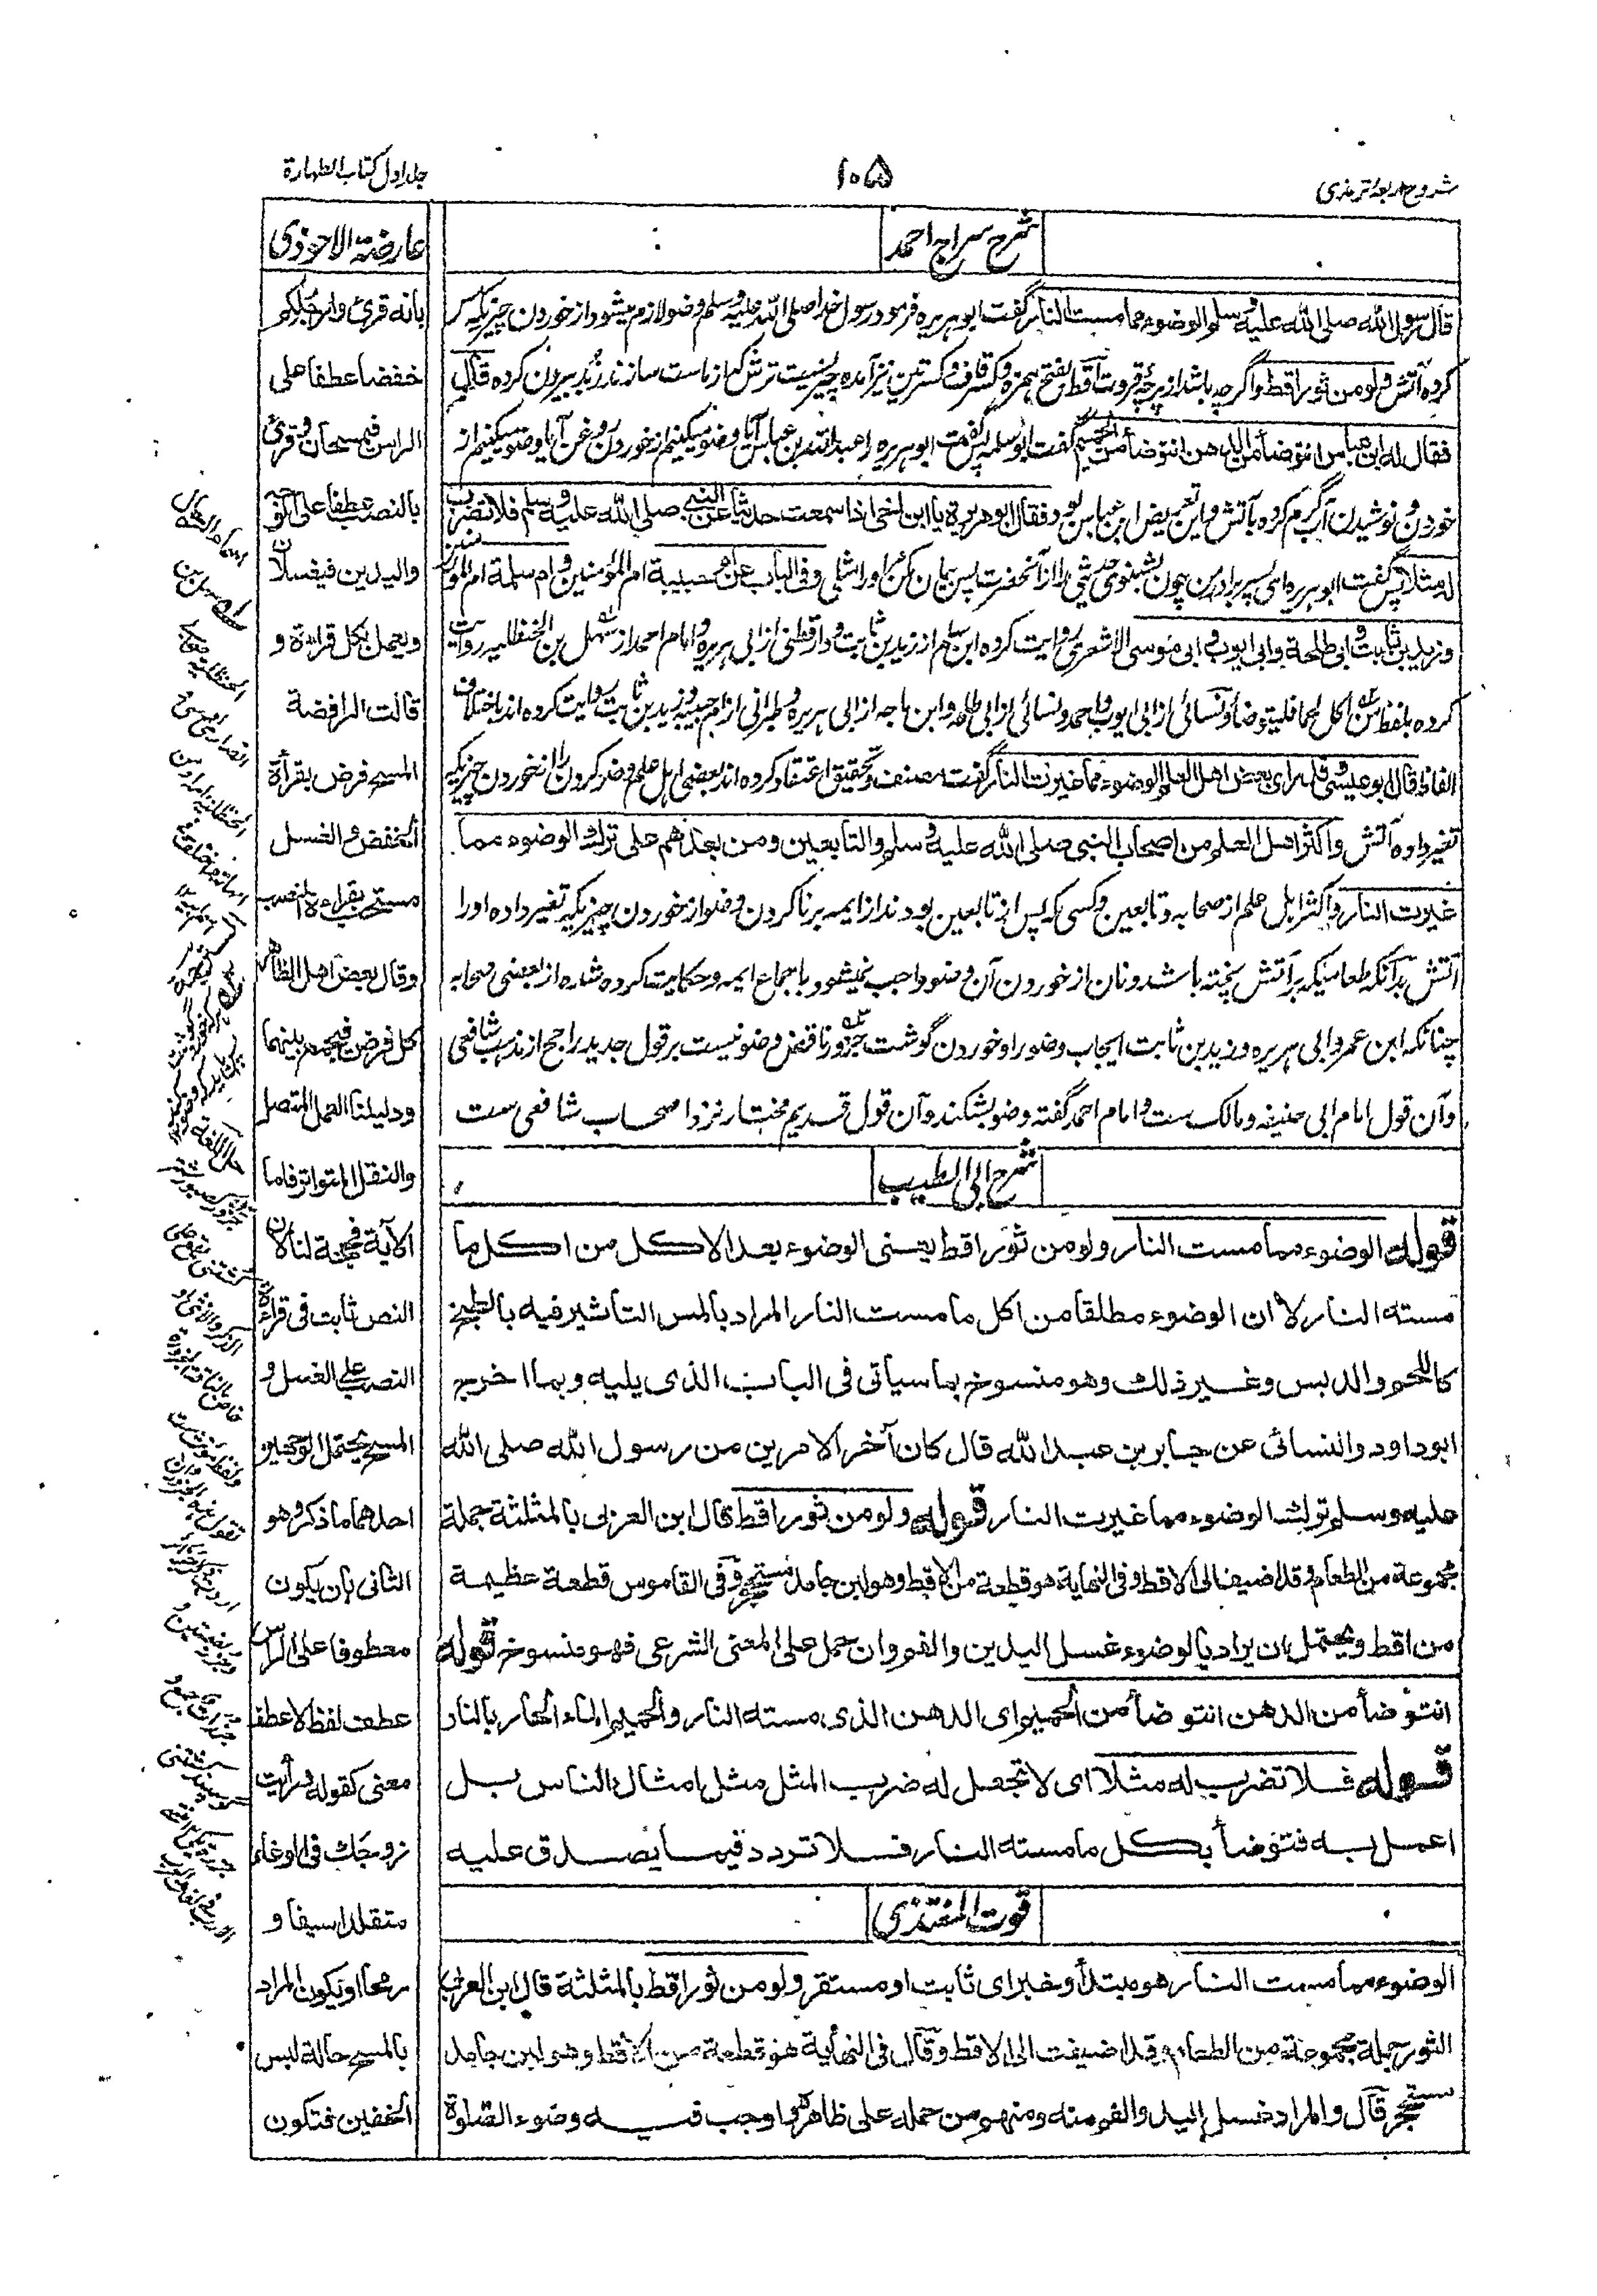 شروح اربعه ترمذی
۱۰۵
جلد اول کتاب الطهارة
شرح سراج احمد
قال رسول الله صلى الله عليه وسلم الوضوء مما مست النار گفت ابو هریره فرمود رسول خدا صلی الله علیه وسلم وضو لازم میشود از خوردن چیزیکه مس
کرده آتش ولو من ثور اقط واگرچه باشد از پرچه قروت اقط بفتح همزه وکسر قاف و کسرتین نیز آمده چیزیست ترش که از ماست سازند زبد بیرون کرده قال
فقال له ابن عباس انتوضأ من الدهن انتوضأ من الحميم گفت ابو سلمه پس گفت ابو هریره را عبدالله بن عباس آیا وضو میکنیم از خوردن روغن آیا وضو میکنیم از
خوردن و نوشیدن آب گرم کرده بآتش و این تعریض ابن عباس بود فقال ابو هريرة يا ابن اخى اذا سمعت حديثا عن النبي صلى الله عليه وسلم فلا تضرب
له مثلا پس گفت ابو هریره ای پسر برادر من چون بشنوی حدیثی را از آنحضرت پس بیان مکن مر او را مثلی وفى الباب عن ام حبيبة ام المؤمنين وام سلمة ام المؤمنين
وزيد بن ثابت وابى طلحة وابى ايوب وابى موسى الاشعرى روایت کرده از زید بن ثابت و دارقطنی از ابی هریره و امام احمد از سهل بن الحنظلیه روایت
کرده بلفظ من اكل لحما فليتوضأ و نسائی از ابی ایوب و احمد و نسائی از ابی طلحه و ابن ماجه از ابی هریره و طبرانی از ام حبیبه و زید بن ثابت روایت کرده اند باختلاف
الفاظ قال ابو عيسى وقد رأى بعض اهل العلم الوضوء مما غيرت النار گفت مصنف و تحقیق اعتقاد کرده اند بعضی اهل علم وضو کردن را از خوردن چیزیکه
تغیر داده آتش واكثر اهل العلم من اصحاب النبي صلى الله عليه وسلم والتابعين ومن بعدهم على ترك الوضوء مما
غيرت النار واکثر اهل علم از صحابه و تابعین و کسی که پس از تابعین بودند از ایمه بر ناکردن وضو از خوردن چیزیکه تغیر داده او را
آتش بدانکه طعامیکه بر آتش پخته باشد و نان از خوردن آن وضو واجب نمیشود با جماع ایمه و حکایت کرده شده از بعضی صحابه
چنانکه ابن عمر و ابی هریره و زید بن ثابت ایجاب وضو را و خوردن گوشت جزور ناقض وضو نیست بر قول جدید راجح از مذهب شافعی
و آن قول امام ابی حنیفه و مالک ست و امام احمد گفته وضو بشکند و آن قول قدیم مختار نزد اصحاب شافعی ست
شرح ابی الطیب
قوله الوضوء مما مست النار ولو من ثور اقط يعنى الوضوء بعد الاكل من اكل ما
مسته النار لا ان الوضوء مطلقا من اكل ما مست النار المراد بالمس التاثير فيه بالطبخ
كاللحم والدبس وغير ذلك وهو منسوخ بما سياتى فى الباب الذى يليه وبما اخرجه
ابوداود والنسائى عن جابر بن عبد الله قال كان آخر الامرين من رسول الله صلى الله
عليه وسلم ترك الوضوء مما غيرت النار قوله ولو من ثور اقط قال ابن العربى بالمثلثة جملة
مجموعة من الطعام وقد اضيف الى الاقط وفى النهاية هو قطعة من الاقط وهو لبن جامد مستحجر وفى القاموس قطعة عظيمة
من اقط ويحتمل ان يراد بالوضوء غسل اليدين والفم وان حمل على المعنى الشرعى فهو منسوخ قوله
انتوضأ من الدهن انتوضأ من الحميم اى الدهن الذى مسته النار والحميم الماء الحار بالنار
قوله فلا تضرب له مثلا اى لا تجعل له ضرب المثل مثل امثال الناس بل
اعمل به فتوضأ بكل ما مسته النار فلا تردد فيما يصدق عليه
قوت المغتذى
الوضوء مما مست النار هو مبتدأ وخبر اى ثابت او مستقر ولو من ثور اقط بالمثلثة قال ابن العربى
الثور جملة مجموعة من الطعام وقد اضيفت الى الاقط وقال فى النهاية هو قطعة من الاقط وهو لبن جامد
مستحجر قال والمراد غسل اليد والفم منه ومنهم من حمله على ظاهره واوجب فيه وضوء الصلوة
عارضة الاحوذى
بانه قرئ وارجلكم
خفضا عطفا على
الراس فيمسحان وقرئ
بالنصب عطفا على الوجه
واليدين فيغسلان
ويعمل بكل قراءة و
قالت الرافضة
المسح فرض بقرأة
الخفض والغسل
مستحب بقراءة النصب
وقال بعض اهل الظاهر
كل فرض فيجمع بينهما
ودليلنا العمل المتصل
والنقل المتواتر فاما
الآية فحجة لنا لان
النص ثابت فى قراءة
النصب على الغسل و
المسح يحتمل الوجهين
احدهما ما ذكر وهو
الثانى بان يكون
معطوفا على الراس
عطف لفظ لا عطف
معنى كقوله ورأيت
زوجك فى الوغا
متقلدا سيفا و
رمحا او يكون المراد
بالمسح حالة لبس
الخفين فتكون